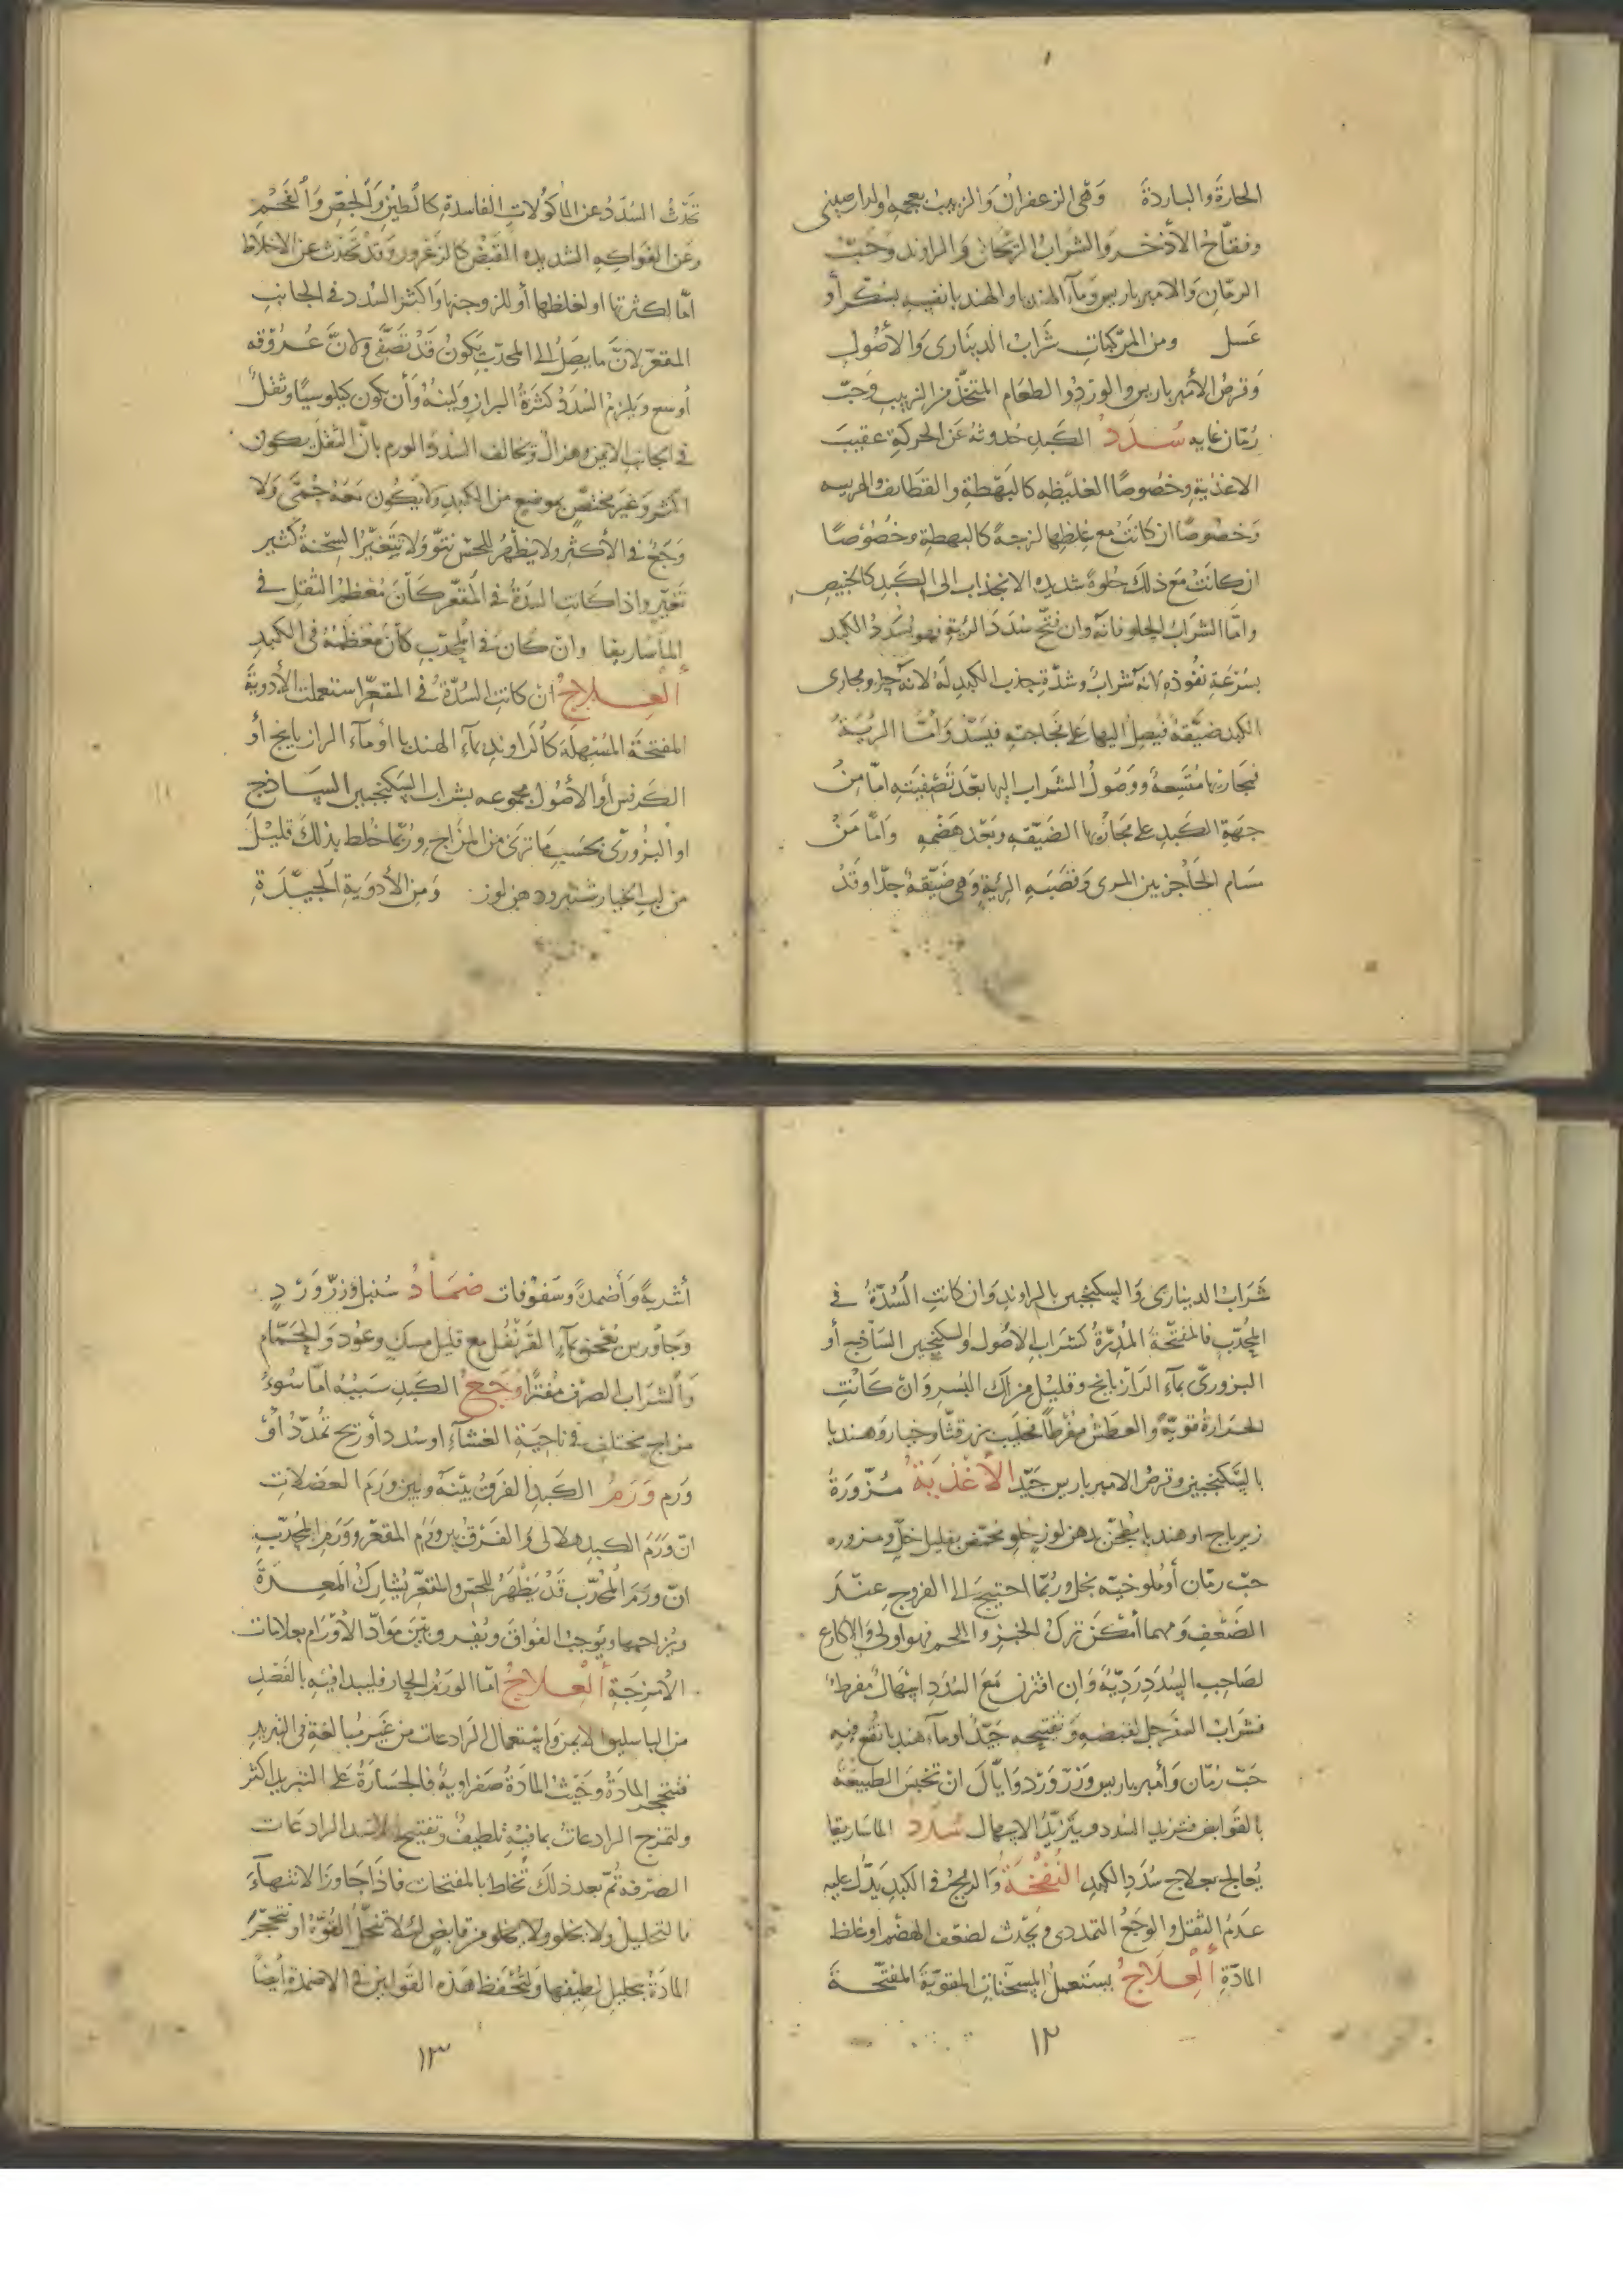 ١
الحارة والباردة وَهى الزعفران وَالزبيب بعجمه والدارصينى
وفقاح الأذخر وَالشراب الريحانى وَالراوند وحَبّ
الرمّان وَالامبرباريس وَمآء الهندبا والهندبا نفسه بسُكر أو
عَسل ومن المركبات شَرابُ الدينَارى وَالأصُول
وَقرصُ الأمبرباريس والورد والطعام المتخذ من الزبيب وَحَبّ
رُمّان غايه سُدَدُ الكَبِد حُدوثهُ عَن الحركة عقيبَ
الاغذية وخصُوصًا الغليظه كالبَهَطة والقطايف والهريسه
وَخصُوصًا ان كانَتْ مع غِلظها لزجةً كالبهطة وخصُوصًا
ان كانَتْ مَع ذلكَ حُلوةً شديده الانجذاب الى الكَبد كالخبيص
وامّا الشرابُ الحلو فانّه وان فتح سُدَدَ الريّة فهو يُسَدد الكَبد
بسُرعَةِ نفُوذه لانّه شرابٌ وشدّة جذب الكَبِد لهُ لانّه حلو ومجارى
الكبد ضيّقة فيصِلُ اليها على فجاجته فيسَدّ وَأمّا الريّة
فمجاريها مُتّسِعة ووصُولُ الشراب اليها بَعْدَ تصْفيَتهِ امّا مِنْ
جهَة الكَبِد على مجاريها الضيّقه وبَعْد هضمهِ وَامّا مِنْ
مسَام الحَاجز بين المرى وَقصَبَه الريّة وَهى ضيّقة جدّا وقَدْ
تَحَدثُ السُدَدُ عن المأكولات الفاسدة كالطين وَالجصّ وَالفَحْمِ
وَعَن الفواكه الشديده القبْض كالزعرور وَقدْ تَحدث عن الاخلاط
امّا لكثرتها او لغلظها أو للزوجتها وَاكثر السُدد فى الجانب
المقعّر لانّ ما يصِلُ الى المحدّب يَكونُ قَدْ تصَفّى ولانّ عُرُوقه
أوسع ويلزم السُدَدُ كثرَةُ البراز وَلينُهُ وَأن يكون كيلوسيًا وثقلٌ
فى الجانب الايمن وهزال وتخالف السُدد الورم بانّ الثقل يكون
اكثر وَغيرَ مختصٍّ بموضع من الكبد وَلا يَكُون مَعَهُ حُمّى وَلا
وَجَعٌ فى الأكثر ولا يظهرُ للحسّ نتوّ ولا تتغيّر السِحْنة كثير
تغيّر واذا كانت السُدةُ فى المُقعّر كانَ مُعظمُ الثقل فى
الماسَاريقا وان كانَ فى المُحدّب كانَ مُعْظَمُهُ فى الكَبِد
العِلاجُ ان كانت السُدّة فى المقعّر استعملت الأدويَة
المفتحة المُسْهِلَة كالراوند بمآء الهندبا أو مآء الرازيانج أو
الكرفس أو الأصُول مجموعه بشراب السكنجبين السَاذج
او البزُورىّ بحَسب ما ترَى من المزاج وربّما خُلط بذلك قليْلَ
من لب الخيار شنبر ودهن لوز وَمن الأدوية الجيّدَةِ
١١
شَرَابُ الدينارى وَالسكنجبين بالراوند وَان كانتِ السُدّةُ فى
المحُدّب فالمفتّحة المُدِرّةُ كشرَاب الاصُول والسكنجبين السَاذج أو
البزورىّ بمآء الرَازيانج وقليل من اللك البُسر وَانْ كانتِ
الحرَارة قويّة وَالعطَش مُفرطاً فحليب بزر قثّا وخيار وَهندبا
بالسّكنجبين وقرصُ الامبرباريس جيّد الأغذيَةُ مُزّورَةُ
زيرباج او هندبا يطجّن بدهن لوزٍ حُلو مُحمّض بقليل خلّ ومزوره
حبّ رمّان أو ملوخيّه بخل وربّما احتيج الى الفروج عنْدَ
الضَعْفِ وَمهما أمْكنَ تركُ الخبز والّلحم فهوَ اولى وَالاكارع
لصَاحِب السُدَدِ رَديّة وَان اقترن مَعَ السُدَدِ اسْهَالٌ مُفرطٌ
فشَرَابُ السفرجل لقبضهِ وَتفتيحه جيّدٌ او مآء هندبا نقع فيهِ
حَبّ رُمّان وَأمبرباريس وَزرّ وَرْد وَايّاكَ انْ تحبسَ الطبيعَة
بالقوَابض فتزيد السُدد ويَتزيّدُ الاسهالُ سُدَدُ الماسَاريقا
يُعالج بعلاج سُدَدِ الكَبِد النُفخةُ وَالريحُ فى الكَبِد يَدُلّ عليه
عَدَمُ الثقل وَالوَجَعُ التمددى وَيَحْدث لضعْف الهضْم أو غلظ
المَادّة العِلَاجُ يستعملُ المسخّنات المقويّة المفتّحَة
١٢
أشربةً وَأضمدةً وسَفوفات ضمَادُ سُنبل وَزرّ وَرْدٍ
وَجَاورس يُعجَن بمآء القرنفل مع قليل مسكٍ وعُود وَالحمّام
وَالشرابُ الصرف مُفترًا وَجَعُ الكَبدِ سَببُهُ امّا سُوءُ
مزاج مختلف فى ناحيَة الغشآء او سُدد أو ريح تُمدّدُ أوْ
ورم وَرَمُ الكَبِد الفرقُ بيْنَهُ وبين وَرَم العضلات
انّ وَرَمَ الكَبِد هلالى وَالفَرْق بين وَرَم المقعّر وَوَرَمِ المُحدّبِ
انّ ورَمَ المُحدّب قَدْ يَظهَرُ للحسّ وَالمقعّر يُشارِكُ المَعِدَةَ
ويُزاحمها ويُوجبُ الفوَاقَ ويُفرق بيْن مَوادّ الأوْرَام بعلامات
الأمزجَةِ العِلاجُ امّا الوَرَمُ الحار فليبدا فيهِ بالفَصْدِ
من الباسليق الايمن وَاسْتعمال الرَادعات من غيْر مُبالغةٍ فى التبريدِ
فتتحجّر المادّة وحَيْثُ المادّة صَفراويةٌ فالجسَارَةُ عَلى التبريد اكثر
ولتمزج الرادعاتُ بما فيهِ تلطيفٌ وتفتيح الرادعَات
الصّرفة ثمّ بعد ذلكَ تُخلط بالمفتحات فاذا جَاوزَ الانتهآءَ
فالتحليل ولا يخلو من قابضٍ لئلا تنحلّ القُوّة او تتحجّرَ
المادّة بتحليل لطيْفها وَلتُحْفَظ هَذه القوانين فى الاضمدَة أيضًا
١٣